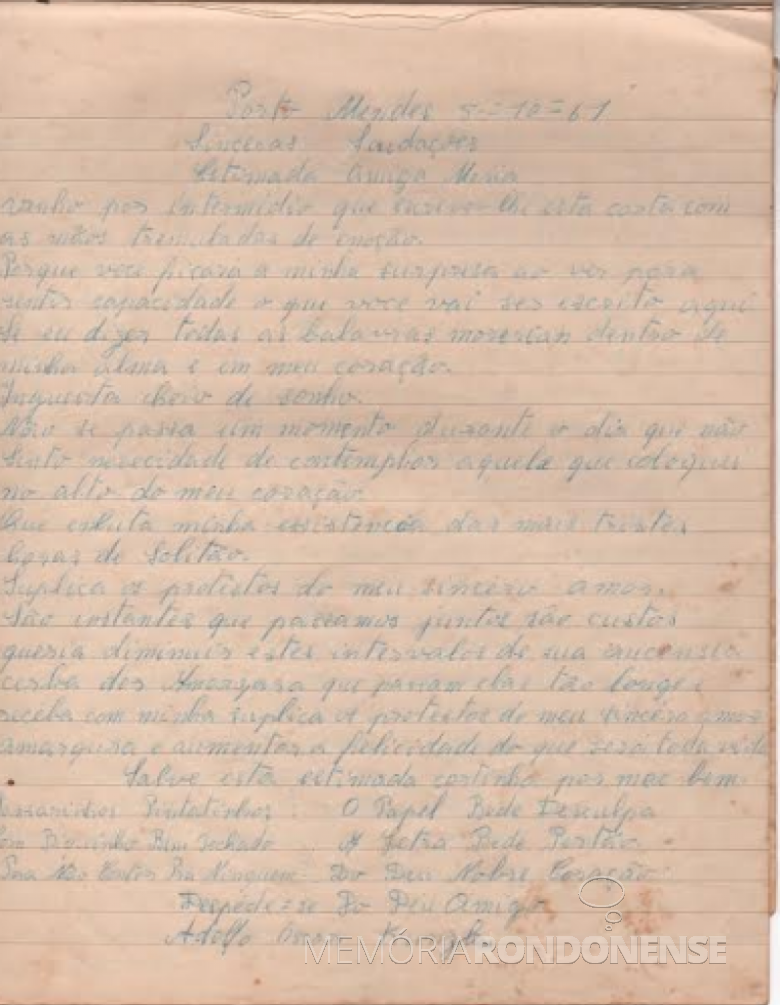 Porto Mendes 5-=10=61
Sinceras Saudações
Estimada Amiga Maria
por intermedio que escrevo-lhe esta carta com
as mãos tremuladas de emoção.
Porque voce ficara a minha surpresa ao ver para
capacidade o que voce vai ser escrito aqui
Se eu dizer todas as balavras moreriam dentro de
minha alma e em meu coração.
cheio de sonho.
Não se passa um momento durante o dia que não
sinto necidade de contemplar aquela que coloquei
no alto do meu coração
Que enluta minha essistencia das mais tristes
horas de Solitão.
Suplica os protestos do meu sincero amor.
São instantes que passamos juntos são custos
queria diminuir estes intervalos de sua
que passam elas tão longe
receba com minha suplica os protestos do meu sincero amor
amargura e aumentar a felicidade do que será toda vida
Salve esta estimada cartinha por meu bem.
Passarinhos Pintatinhos O Papel Bede Desculpa
Com Biquinho Bem Fechado A Letra Bede Pertão
Para Não Contar Pra Ninguem Do Deu Nobre Coração
Despede=se Do Deu Amigo
Adolfo
MEMÓRIARONDONENSE